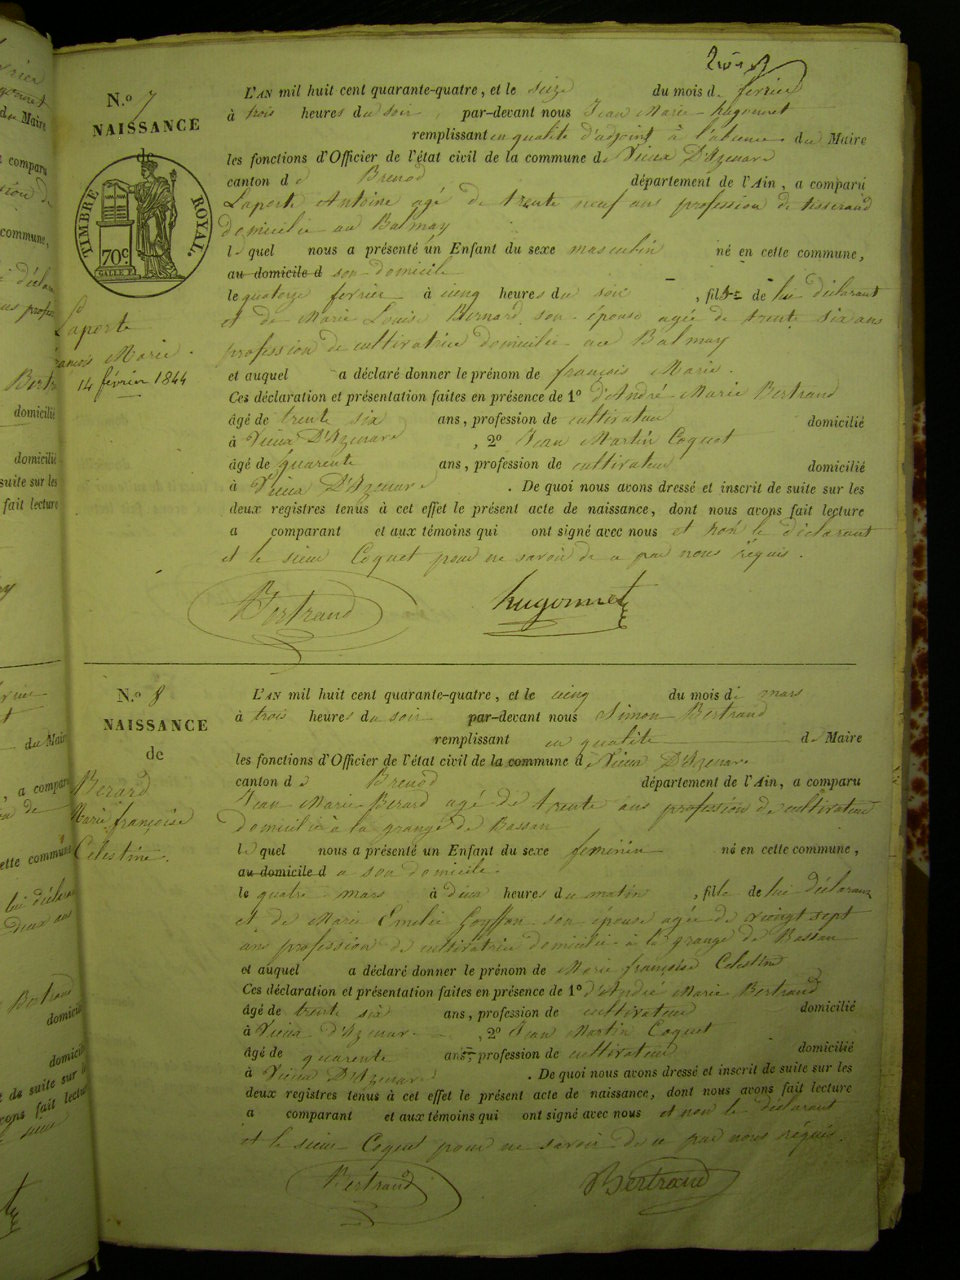 N.º 7
NAISSANCE
TIMBRE ROYAL.
70c.
Laporte
françois Marie.
14 février 1844
L'AN mil huit cent quarante-quatre, et le seize du mois de février
à trois heures du soir, par-devant nous Jean Marie hugonnet
remplissant en qualité d'adjoint à l'absence du Maire
les fonctions d'Officier de l'état civil de la commune de Vieux D'Izenave
canton de Brenod département de l'Ain, a comparu
Laporte Antoine agé de trente neuf ans profession de tisserand
domicilié au Balmay
lequel nous a présenté un Enfant du sexe masculin né en cette commune,
au domicile d son domicile
le quatorze fevrier à cinq heures du soir, fils de lui déclarant
et de Marie Louise Bernard son épouse agée de trente six ans
profession de cultivatrice domiciliée au Balmay
et auquel a déclaré donner le prénom de françois Marie.
Ces déclaration et présentation faites en présence de 1º d'André Marie Bertrand
âgé de trente six ans, profession de cultivateur domicilié
à Vieux D'Izenave, 2º Jean Martin Coquet
âgé de quarente ans, profession de cultivateur domicilié
à Vieux D'Izenave. De quoi nous avons dressé et inscrit de suite sur les
deux registres tenus à cet effet le présent acte de naissance, dont nous avons fait lecture
a comparant et aux témoins qui ont signé avec nous et non le déclarant
et le sieur Coquet pour ne savoir de ce par nous réquis.
Bertrand hugonnet
N.º 8
NAISSANCE
de
Berard
Marie françoise
Celestine.
L'AN mil huit cent quarante-quatre, et le cinq du mois de mars
à trois heures du soir par-devant nous Simon Bertrand
remplissant en qualité de Maire
les fonctions d'Officier de l'état civil de la commune de Vieux D'Izenave
canton de Brenod département de l'Ain, a comparu
Jean Marie Berard agé de trente ans profession de cultivateur
domicilié à la grange de Bassan
lequel nous a présenté un Enfant du sexe feminin né en cette commune,
au domicile d a son domicile
le quatre mars à deux heures du matin, fille de lui déclarant
et de Marie Emelie Goyffon son épouse agée de vingt sept
ans profession de cultivatrice domiciliée à la grange de Bassan
et auquel a déclaré donner le prénom de Marie françoise Celestine
Ces déclaration et présentation faites en présence de 1º d'André Marie Bertrand
âgé de trente six ans, profession de cultivateur domicilié
à Vieux D'Izenave, 2º Jean Martin Coquet
âgé de quarente ans, profession de cultivateur domicilié
à Vieux D'Izenave. De quoi nous avons dressé et inscrit de suite sur les
deux registres tenus à cet effet le présent acte de naissance, dont nous avons fait lecture
a comparant et aux témoins qui ont signé avec nous et non le déclarant
et le sieur Coquet pour ne savoir de ce par nous réquis.
Bertrand Bertrand